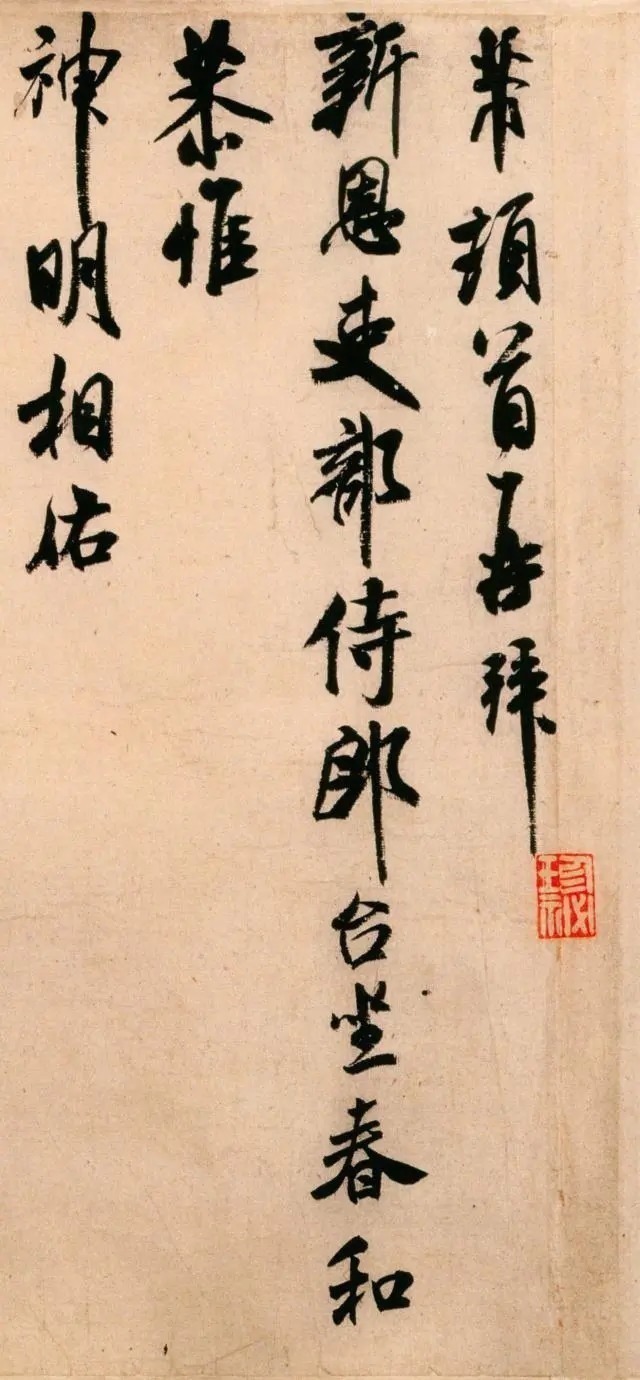 芾頓首再拜
新恩吏部侍郎台坐春和
恭惟
神明相佑
珍祕